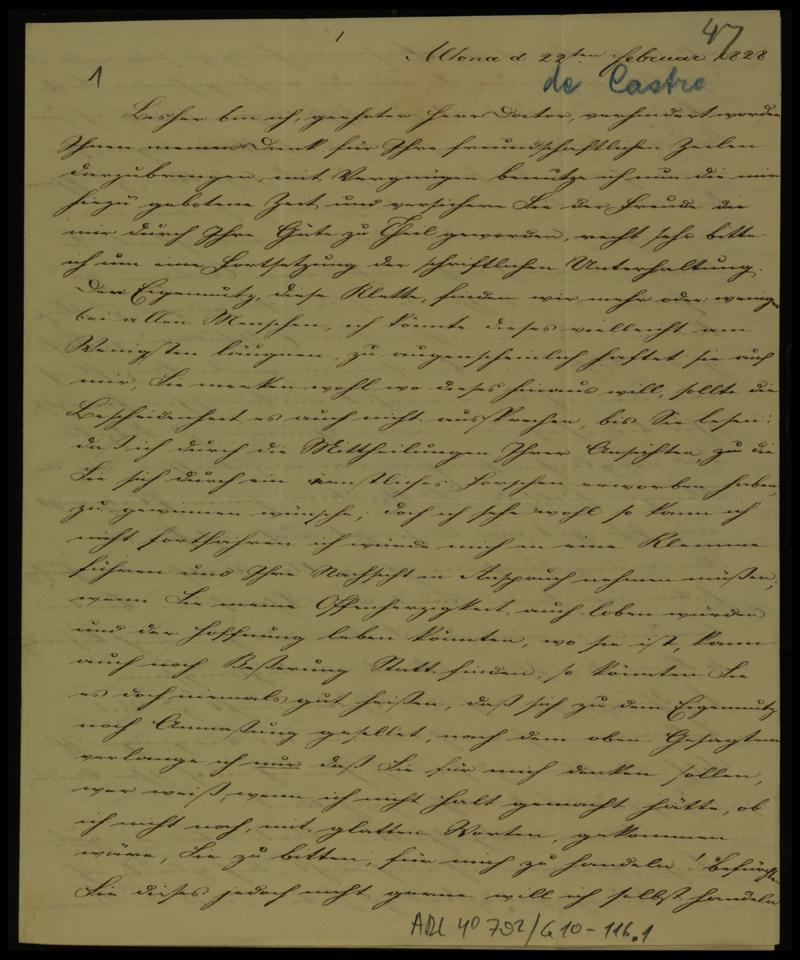 47
1
Altona d 22ten Februar 1828
de Castro
Bisher bin ich, geehrter Herr Doctor, verhindert worden
Ihnen meinen Dank für Ihre freundschaftlichen Zeilen
darzubringen, mit Vergnügen benutze ich nun die mir
hiezu gebotene Zeit und versichere Sie der Freude die
mir durch Ihre Güte zu Theil geworden, recht sehr bitte
ich um eine Fortsetzung der schriftlichen Unterhaltung.
Der Eigennutz, diese Klette, finden wir mehr oder weniger
bei allen Menschen, ich könnte dieses vielleicht am
Wenigsten läugnen, zu augenscheinlich haftet sie auch
mir, Sie merken wohl wo dieses hinaus will, sollte die
Bescheidenheit es auch nicht aussprechen, bis Sie lesen:
daß ich durch die Mittheilungen Ihrer Ansichten, zu die
Sie sich durch ein ernstliches Forschen erworben haben,
zu gewinnen wünsche; doch ich sehe wohl so kann ich
nicht fortfahren ich würde mich in eine Klemme
führen und Ihre Nachsicht in Anspruch nehmen müßen;
wenn Sie meine Offenherzigkeit auch loben würden
und der Hoffnung leben könnten, wo sie ist, kann
auch noch Beßerung Statt finden, so könnten Sie
es doch niemals gut heißen, daß sich zu dem Eigennutz
noch Anmaßung gesellet, nach dem oben Gesagten
verlange ich nur daß Sie für mich denken sollen,
wer weiß, wenn ich nicht halt gemacht hätte, ob
ich nicht noch, mit glatten Worten, gekommen
wäre, Sie zu bitten, für mich zu handeln! befürchten
Sie dieses jedoch nicht gerne will ich selbst handeln